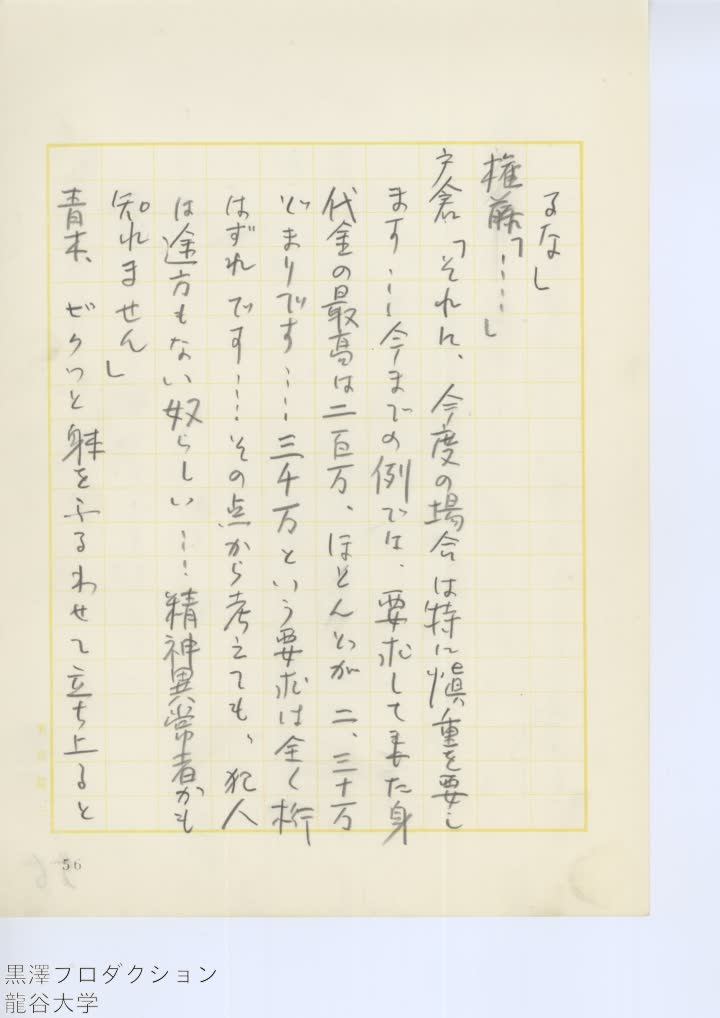 るな」
権藤「‥‥」
戸倉「それに、今度の場合は特に慎重を要し
ます‥‥今までの例では、要求して来た身
代金の最高は二百万、ほとんどが二、三十万
どまりです‥‥三千万という要求は全く桁
はずれです‥‥その点から考えても、犯人
は途方もない奴らしい‥‥精神異常者かも
知れません」
青木、ビクッと躰をふるわせて立ち上ると
56
黒澤プロダクション
龍谷大学